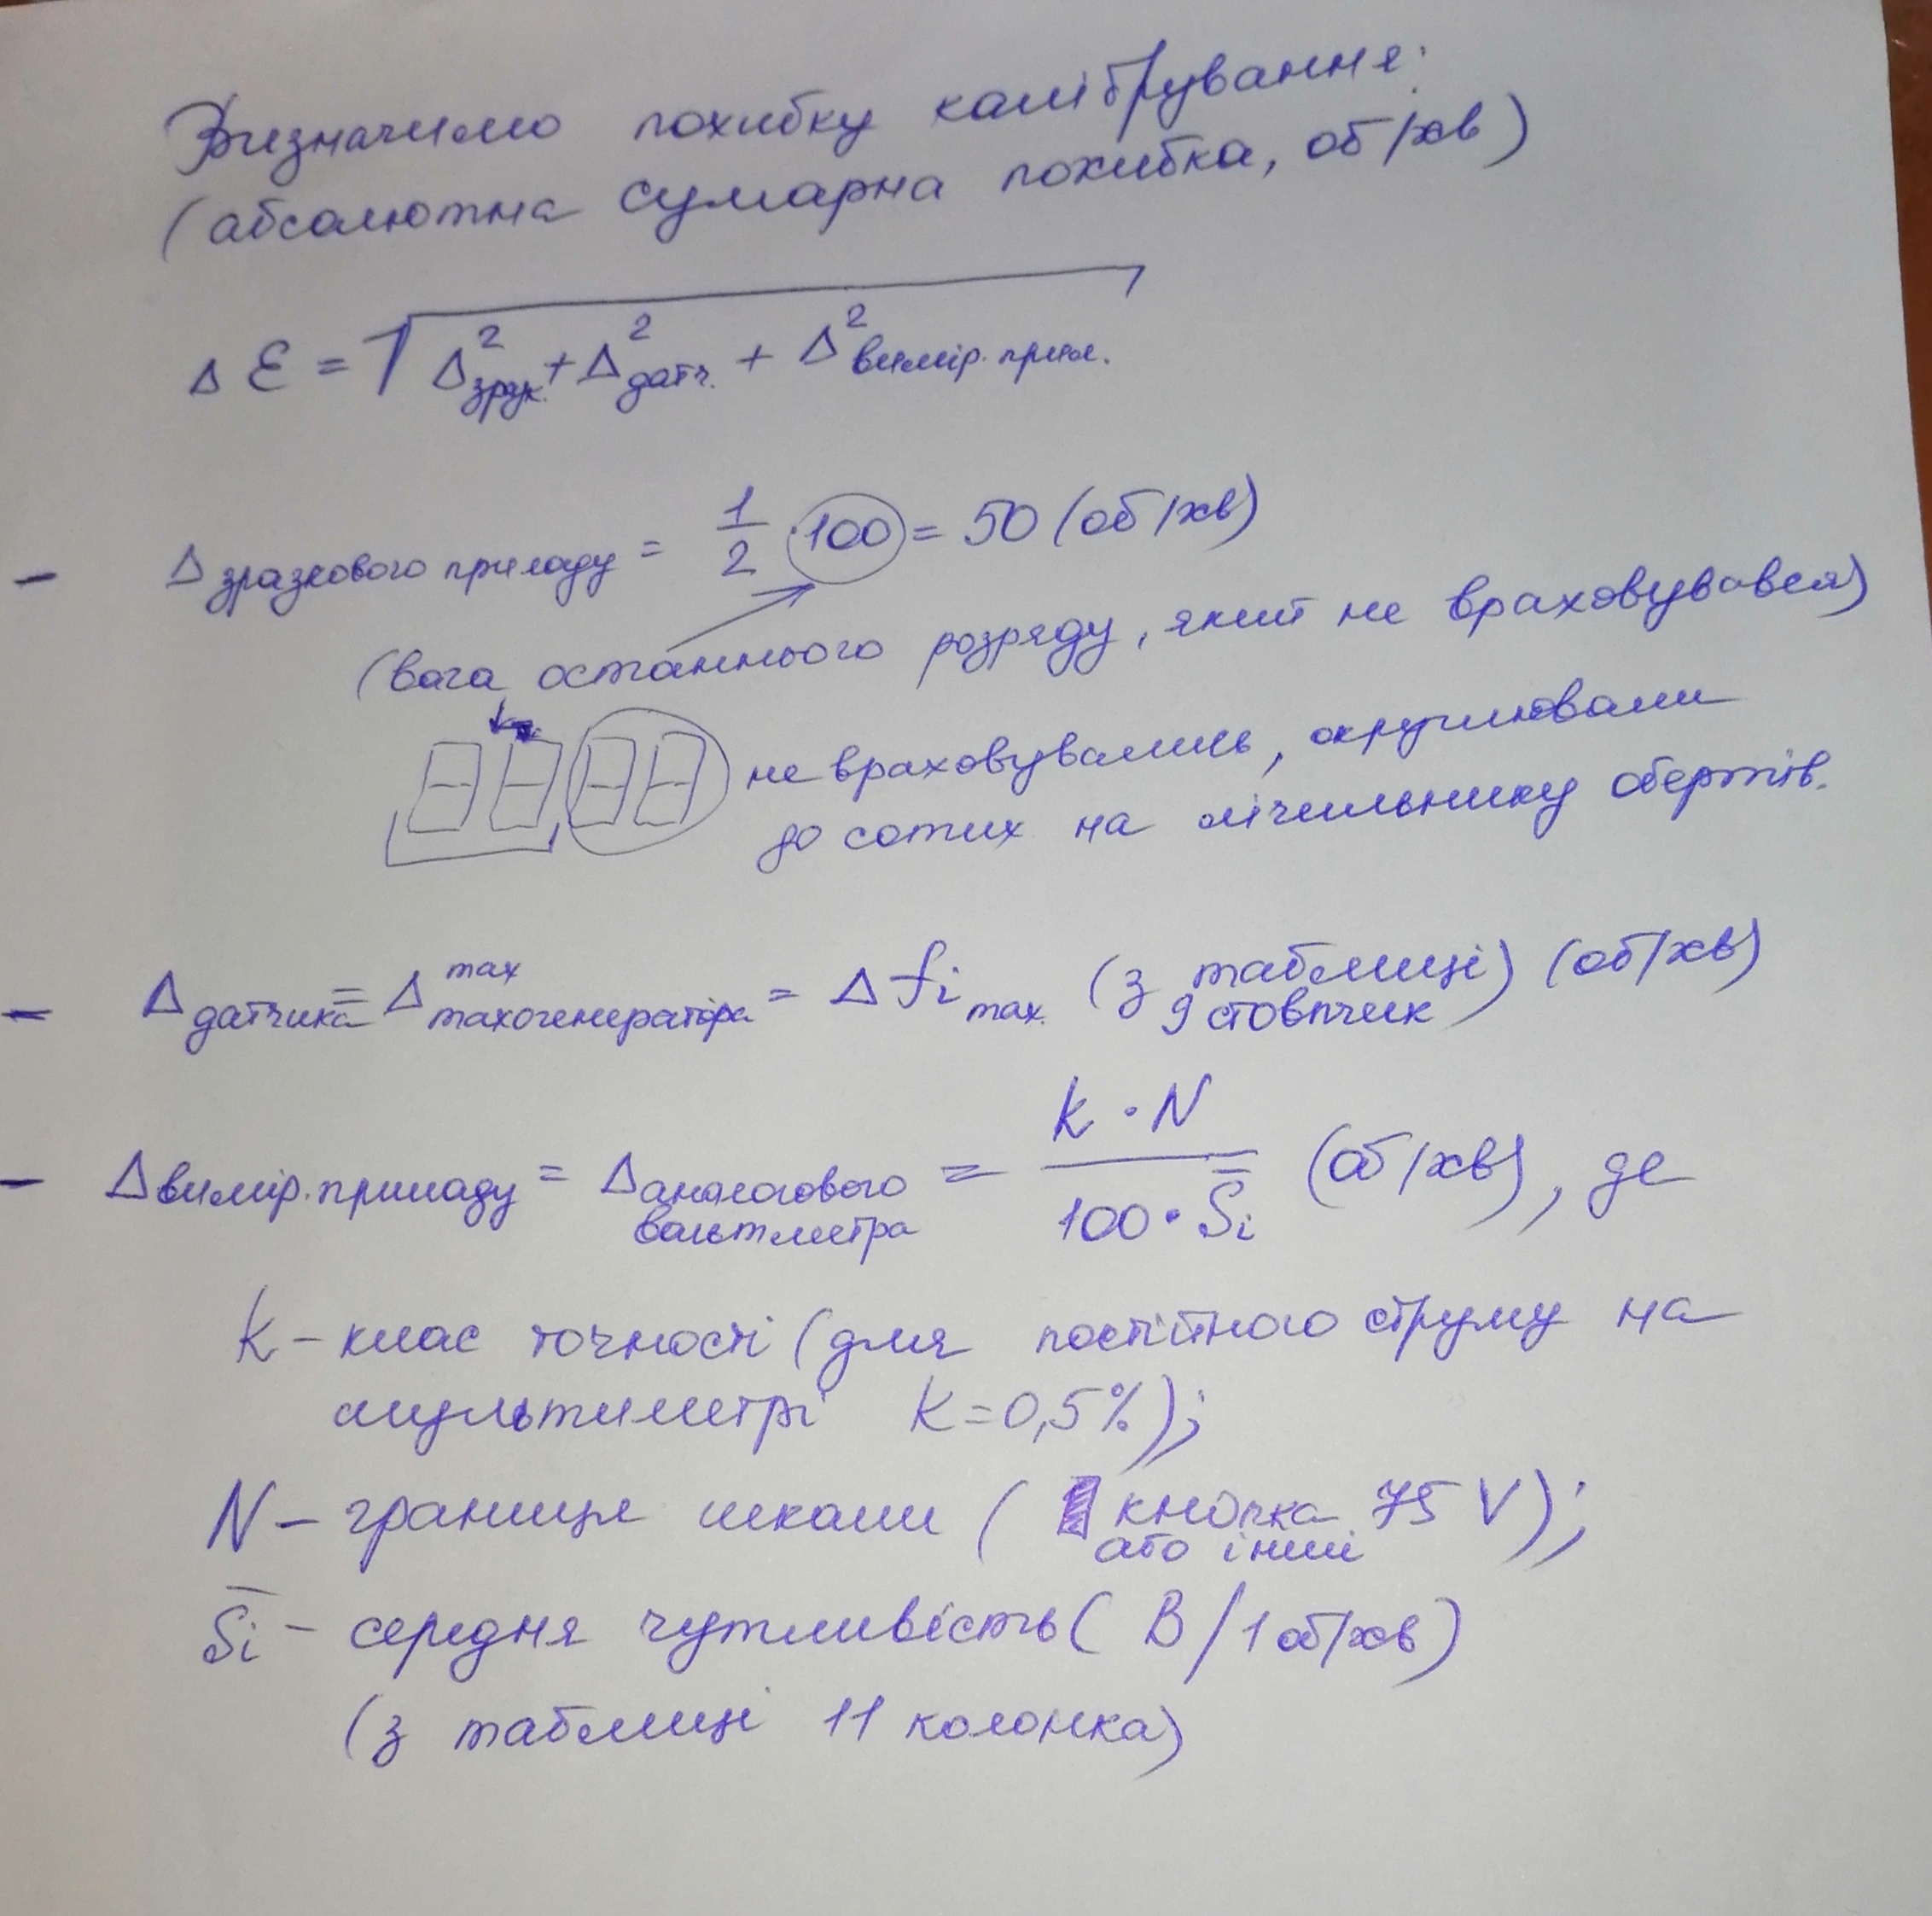 Визначимо похибку калібрування:
(абсолютна сумарна похибка, об/хв)
Δ Ɛ = √ Δ²зрзк. + Δ²датч. + Δ²вимір. прил.
– Δ зразкового приладу = 1/2 · 100 = 50 (об/хв)
(вага останнього розряду, який не враховувався)
не враховувались, округлювали
до сотих на лічильнику обертів.
– Δ датчика = Δ max тахогенератора = Δ fi max. (з таблиці) (об/хв)
9 стовпчик
– Δ вимір. приладу = Δ аналогового вольтметра = k · N / 100 · S̄i (об/хв), де
k – клас точності (для постійного струму на
мультиметрі K = 0,5%);
N – границя шкали ( кнопка 75 V);
або інші
S̄i – середня чутливість ( В / 1 об/хв)
(з таблиці 11 колонка)